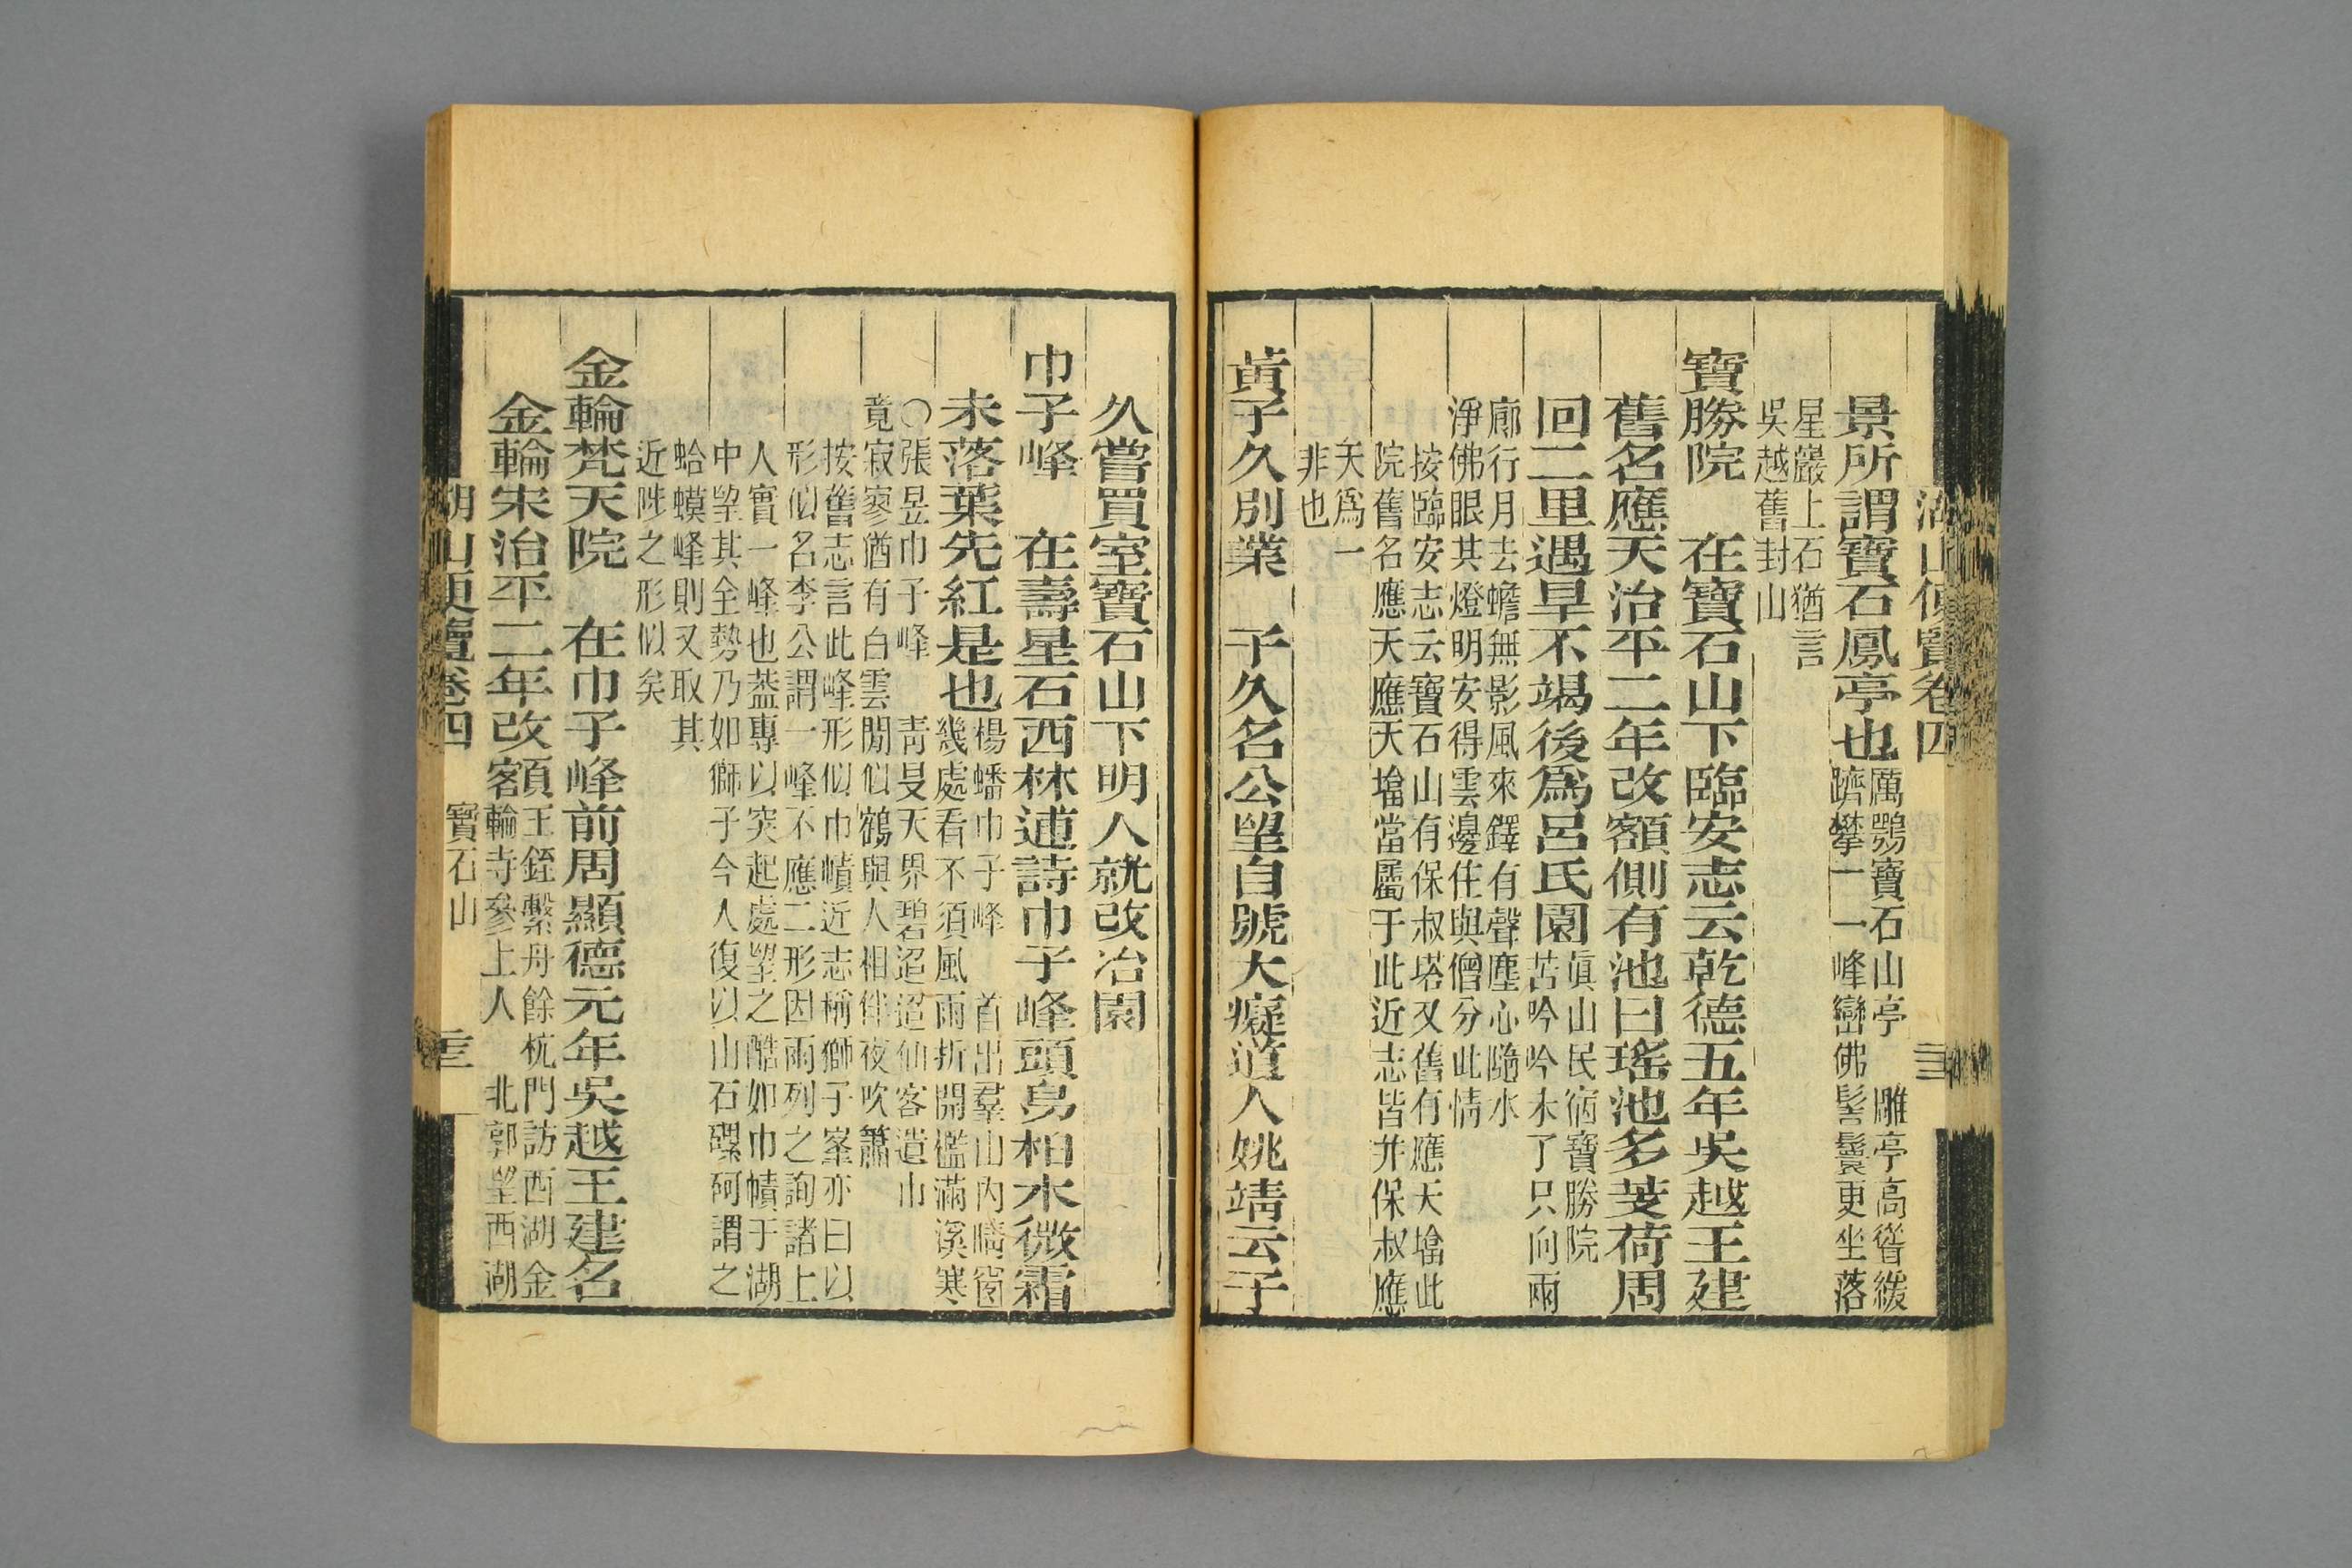 湖山便覽卷四
三
景所謂寶石鳳亭也
厲鶚寶石山亭 雕亭高聳緩
躋攀一一峰巒佛髻鬟更坐落
星巖上石猶言
吳越舊封山
寶勝院 在寶石山下臨安志云乾德五年吳越王建
舊名應天治平二年改額側有池曰瑤池多芰荷周
回二里遇旱不竭後爲呂氏園
眞山民宿寶勝院
苦吟吟未了只向雨
廊行月去蟾無影風來鐸有聲塵心隨水
淨佛眼其燈明安得雲邊住與僧分此情
按臨安志云寶石山有保叔塔又舊有應天塔此
院舊名應天應天塔當屬于此近志皆并保叔應
天爲一
非也
黃子久別業 子久名公望自號大癡道人姚靖云子
久嘗買室寶石山下明人就改冶園
巾子峰 在壽星石西林逋詩巾子峰頭烏桕木微霜
未落葉先紅是也
楊蟠巾子峰 首出羣山內晴窗
幾處看不須風雨折開檻滿溪寒
○張昱巾子峰 靑旻天界碧迢迢仙客遺巾
竟寂寥猶有白雲閒似鶴與人相伴夜吹簫
按舊志言此峰形似巾幘近志稱獅子峯亦曰以
形似名李公謂一峰不應二形因兩列之詢諸上
人實一峰也葢專以突起處望之酷如巾幘于湖
中望其全勢乃如獅子今人復以山石磥砢謂之
蛤蟆峰則又取其
近陛之形似矣
金輪梵天院 在巾子峰前周顯德元年吳越王建名
金輪宋治平二年改額
王銍繫舟餘杭門訪西湖金
輪寺參上人 北郭望西湖
湖山便覽卷四
寶石山
三